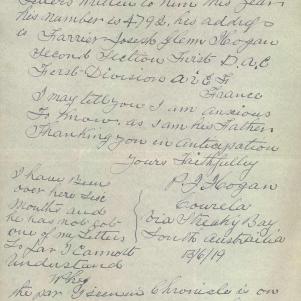 letters written to him this year
his number is 4792, his address
is Farrier Joseph Glenn Hogan
Second Section First D.A.C
First Division A.I.E.F
France
I may tell you I am anxious
to know, as I am his Father
Thanking you in anticipation
Yours Faithfully
P J Hogan
Courela
via Streaky Bay
South Australia
13/6/19
I have been
over here six
months and
he has not got
one of my letters
so far I cannot
understand
why
the par I seen in Chronicle is on